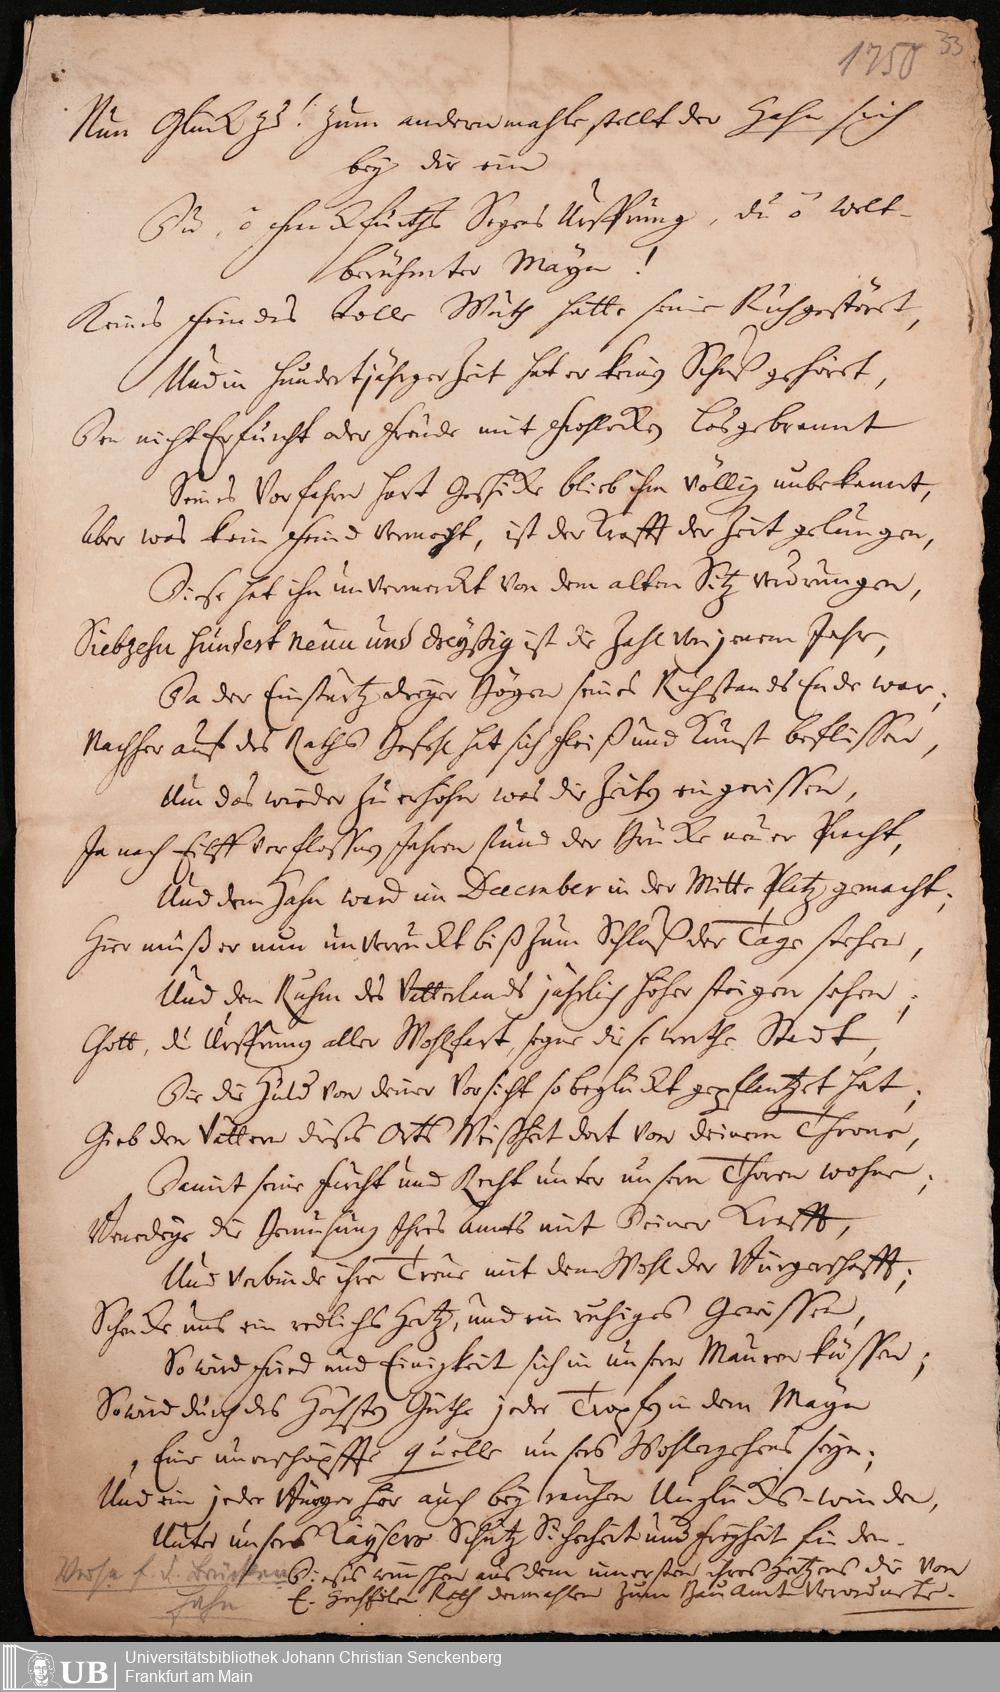 1750 33
Nun Glück zu! zum andernmahle stellt der Hahn sich
bey dir ein
Du, ô Franckfurths Segens Ursprung, du ô welt-
berühmter Mayn!
Keines Feindes tolle Wuth hatte seine Ruh gestöret,
Und in hundertjähriger Zeit hat er keinen Schuß gehöret,
Den nicht Ehrfurcht oder Freude mit Frohlocken losgebrannt
Seines Vorfahren hart Geschicke blieb ihm völlig unbekannt,
Aber was kein Feind vermocht, ist der Krafft der Zeit gelungen,
Diese hat ihn unvermerckt von dem alten Sitz verdrungen,
Siebzehn hundert neun und dreyßig ist die Zahl von jenem Jahr,
Da der Einsturtz dreyer Bögen seines Ruhstands Ende war;
Nachher auf des Raths Befehl hat sich Fleiß und Kunst beflissen,
Um das wieder zu erhöhn was die Zeiten eingerissen,
Ja nach Eilff verfloßnen Jahren stund der Brücke neuer Pracht,
Und dem Hahn ward im December in der Mitte Platz gemacht;
Hier muß er nun unverruckt biß zum Schluß der Tage stehen,
Und den Ruhm des Vatterlands jährlich höher steigen sehen;
Gott, du Ursprung aller Wohlfart, segne diese werthe Stadt,
Die die Huld von deiner Vorsicht so beglückt gepflantzet hat;
Gieb den Vättern dieses Orts Weißheit dort von deinem Throne,
Damit seine Furcht und Recht unter unsern Thoren wohne;
Benedeye die Bemühung Ihres Amts mit Deiner Krafft,
Und verbinde ihre Treue mit dem Wohl der Bürgerschafft;
Schencke uns ein redlichs Hertz, und ein ruhiges Gewissen,
So wird Fried und Einigkeit sich in unsern Mauren küssen;
So wird durch des Höchsten Güthe jeder Tropfen in dem Mayn
Eine unerschöpffte Quelle unsers Wohlergehens seyn;
Und ein jeder Bürger hier auch bey rauhen Unglücks-winden,
Unter unsers Kaysers Schutz Sicherheit und Freyheit finden.
Dieses wünschen aus dem innersten ihres Hertzens die von
E. Hochedlen Rath dermahlen zum Bau Amt Verordnete.
Verse f. d. Brücken
Hahn
UB Universitätsbibliothek Johann Christian Senckenberg
Frankfurt am Main